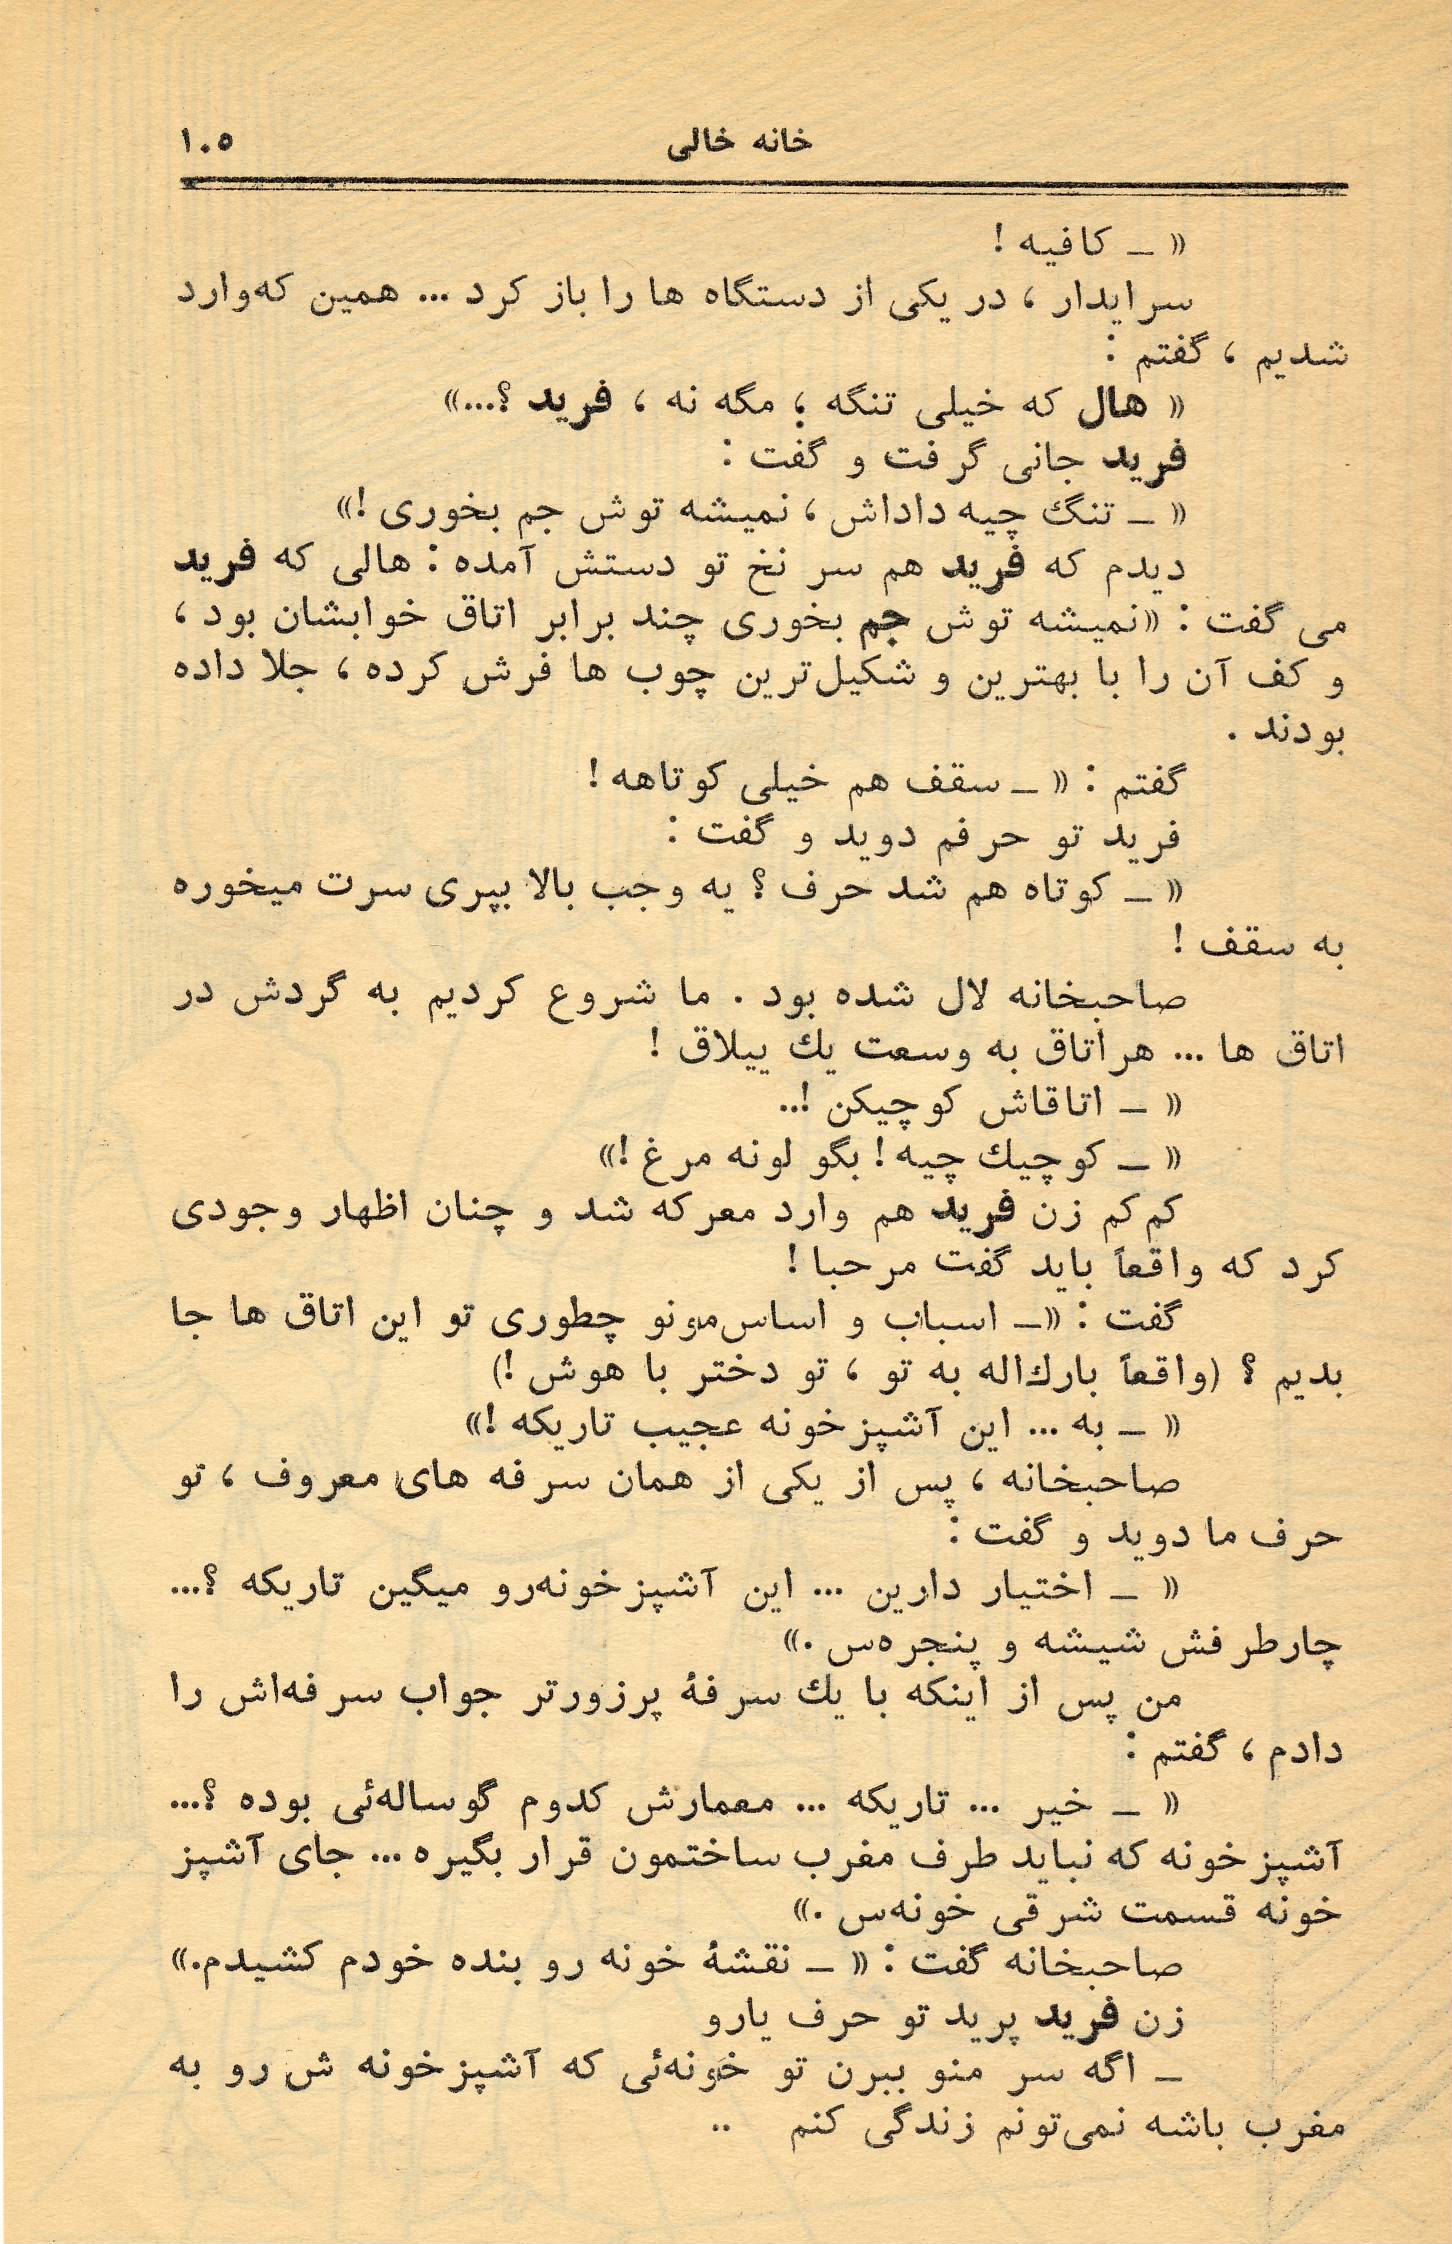 خانه خالی ۱۰۵
« ـ کافیه !
سرایدار ، در یکی از دستگاه ها را باز کرد ... همین که‌وارد
شدیم ، گفتم :
« هال که خیلی تنگه ؛ مگه نه ، فرید ؟...»
فرید جانی گرفت و گفت :
« ـ تنگ چیه داداش ، نمیشه توش جم بخوری !»
دیدم که فرید هم سر نخ تو دستش آمده : هالی که فرید
می گفت : «نمیشه توش جم بخوری چند برابر اتاق خوابشان بود ،
و کف آن را با بهترین و شکیل‌ترین چوب ها فرش کرده ، جلا داده
بودند .
گفتم : « ـ سقف هم خیلی کوتاهه !
فرید تو حرفم دوید و گفت :
« ـ کوتاه هم شد حرف ؟ یه وجب بالا بپری سرت میخوره
به سقف !
صاحبخانه لال شده بود . ما شروع کردیم به گردش در
اتاق ها ... هر اتاق به وسعت یك ییلاق !
« ـ اتاقاش کوچیکن !..
« ـ کوچیك چیه ! بگو لونه مرغ !»
کم‌کم زن فرید هم وارد معرکه شد و چنان اظهار وجودی
کرد که واقعاً باید گفت مرحبا !
گفت : «ـ اسباب و اساس‌مونو چطوری تو این اتاق ها جا
بدیم ؟ (واقعاً بارك‌اله به تو ، تو دختر با هوش !)
« ـ به ... این آشپزخونه عجیب تاریکه !»
صاحبخانه ، پس از یکی از همان سرفه های معروف ، تو
حرف ما دوید و گفت :
« ـ اختیار دارین ... این آشپزخونه‌رو میگین تاریکه ؟...
چارطرفش شیشه و پنجره‌س .»
من پس از اینکه با یك سرفهٔ پرزورتر جواب سرفه‌اش را
دادم ، گفتم :
« ـ خیر ... تاریکه ... معمارش کدوم گوساله‌ئی بوده ؟...
آشپزخونه که نباید طرف مغرب ساختمون قرار بگیره ... جای آشپز
خونه قسمت شرقی خونه‌س .»
صاحبخانه گفت : « ـ نقشهٔ خونه رو بنده خودم کشیدم.»
زن فرید پرید تو حرف یارو
ـ اگه سر منو ببرن تو خونه‌ئی که آشپزخونه ش رو به
مغرب باشه نمی‌تونم زندگی کنم ..